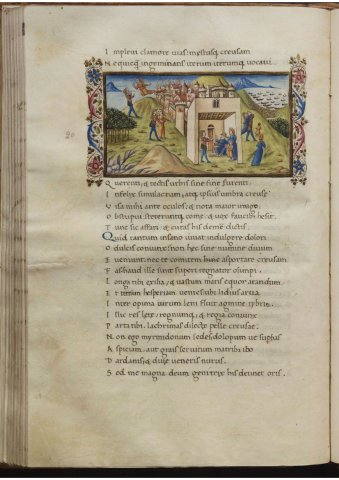 I mplevi clamore vias: mestusq; creusam
N equicq; ingeminans iterum iterumq; vocavi.
20
Q uerenti, & tectis urbis sine fine furenti
I nfelix simulacrum, atq; ipsius umbra creuse
V isa mihi ante oculos, & nota maior imago.
O bstupui steteruntq; come: & vox faucibus hesit.
T unc sic affari, & curas his demere dictis.
Quid tantum insano iuvat indulgere dolori
O dulcis coniunx? non hec sine numine divum
E veniunt: nec te comitem hinc asportare creusam
F as haud ille sinit superi regnator olimpi.
L onga tibi exilia, & vastum maris equor arandum.
E t terram hesperiam venies: ubi lidius arva
I nter opima virum leni fluit agmine tybris.
I llic res lete, regnumq; & regia coniunx
P arta tibi. lachrimas dilecte pelle creuse.
N on ego myrmidonum sedes, dolopum ve supbas
A spiciam: aut grais servitum matribus ibo
D ardanis, & dive veneris nurus.
S ed me magna deum genitrix his detinet oris.